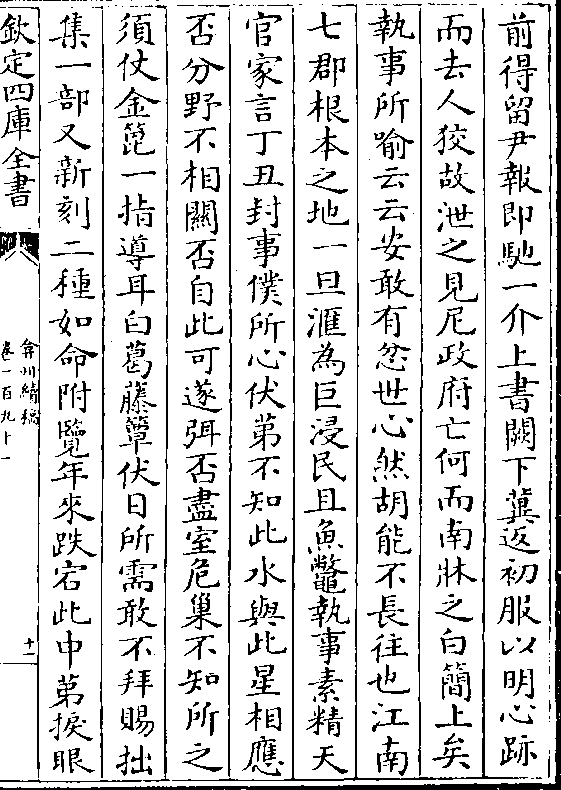 前得留尹報即馳一介上書闕下冀返初服以明心跡
而去人狡故泄之見尼政府亡何而南牀之白簡上矣
執事所喻云云安敢有忿世心然胡能不長往也江南
七郡根本之地一旦滙為巨浸民且魚鼈執事素精天
官家言丁丑封事僕所心伏第不知此水與此星相應
否分野不相關否自此可遂弭否盡室危巢不知所之
須仗金篦一指導耳白葛藤簟伏日所需敢不拜賜拙
集一部又新刻二種如命附覽年來跌宕此中第捩眼
欽定四庫全書
弇州續稿
卷一百九十一
十一